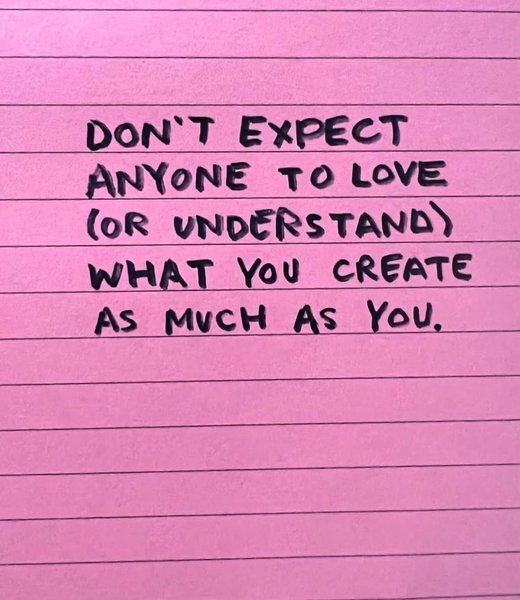 DON'T EXPECT
ANYONE TO LOVE
(OR UNDERSTAND)
WHAT YOU CREATE
AS MUCH AS YOU.